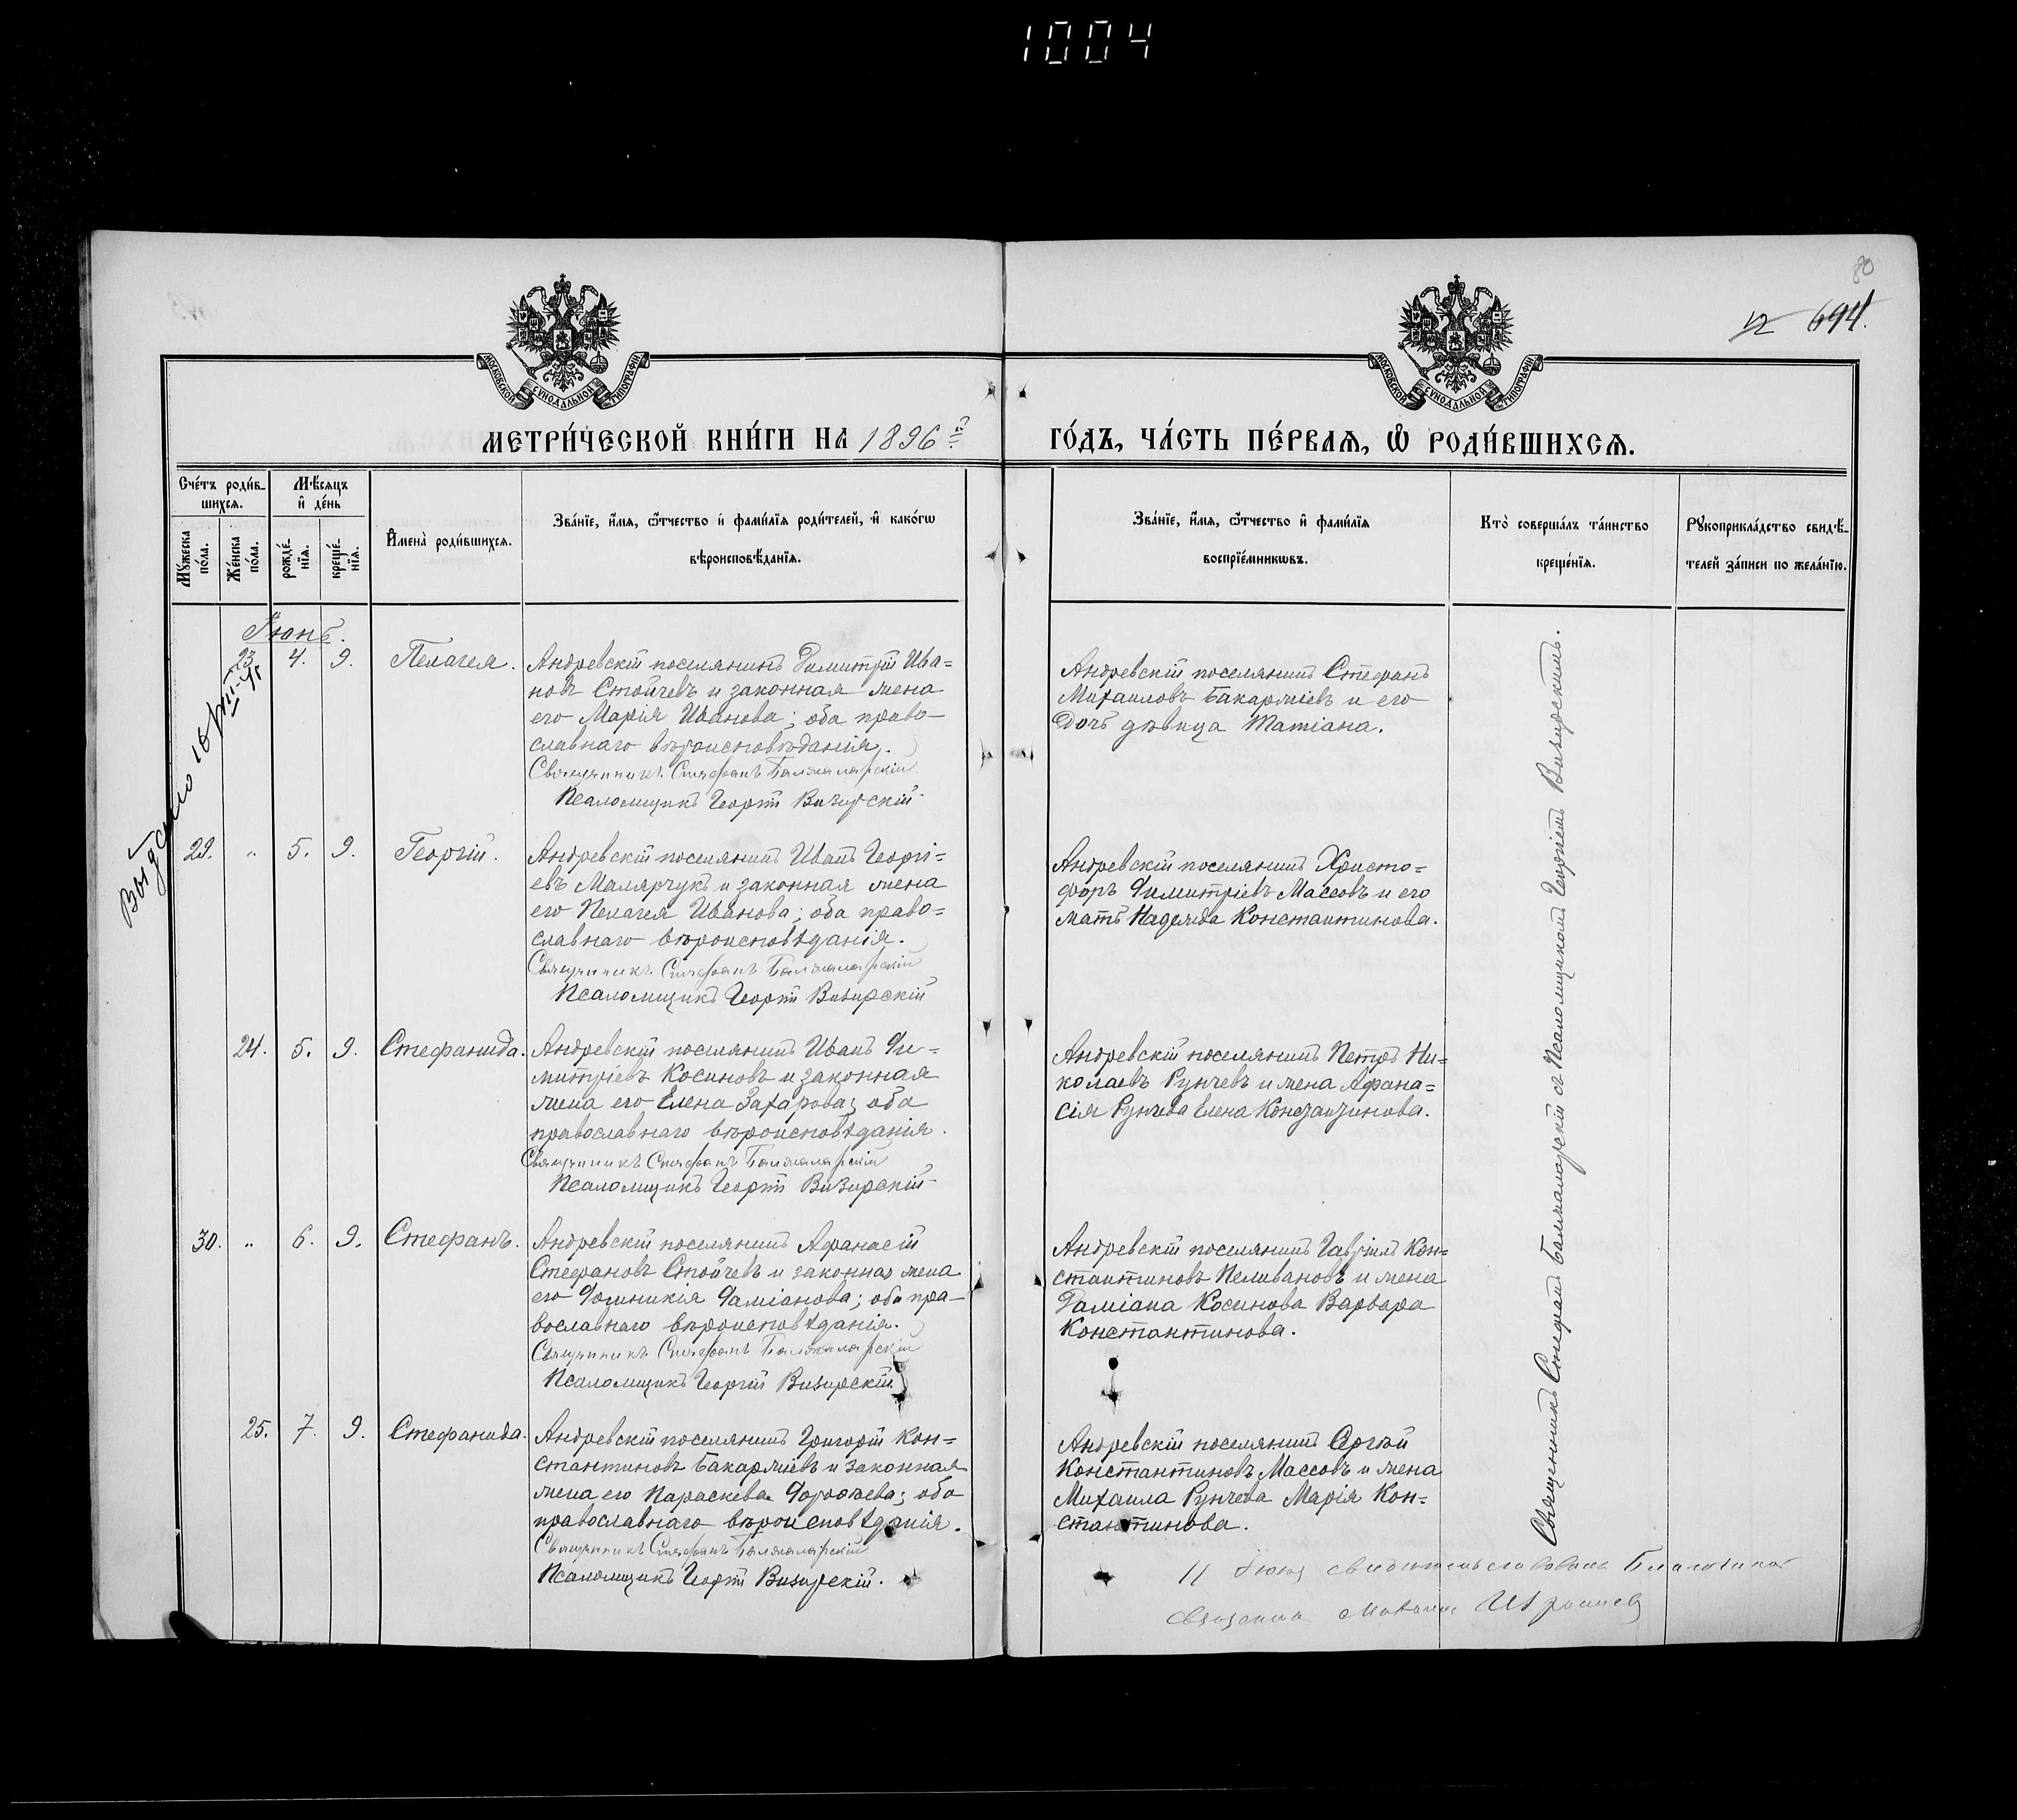 1004
80
12 694.
МОСКОВСКОЙ СѴНОДАЛЬНОЙ ТИПОГРАФІИ
МОСКОВСКОЙ СѴНОДАЛЬНОЙ ТИПОГРАФІИ
МЕТРИ́ЧЕСКОЙ КНИ́ГИ НА 1896 й
ГО́ДЪ, ЧА́СТЬ ПЕ́РВАѦ, Ѽ РОДИ́ВШИХСѦ.
Сче́тъ роди́в-
шихся.
Мѣ́сяцъ
и҆ де́нь
Мꙋ́жеска
по́ла.
Же́нска
по́ла.
рожде́-
нїя.
креще́-
нїя.
И҆мена̀ роди́вшихся.
Зва́нїе, и҆́мя, ѻ҆́тчество и҆ фами́лїя роди́телей, и҆ како́гѡ
вѣроисповѣ́данїя.
Зва́нїе, и҆́мя, ѻ҆́тчество и҆ фами́лїя
воспрїе́мникѡвъ.
Кто̀ соверша́лъ та́инство
креще́нїя.
Рꙋкоприкла́дство свидѣ́-
телей за́писи по жела́нїю.
Іюнь.
23. 4. 9. Пелагея.
Андревскій поселянинъ Димитрій Ива=
новъ Стойчевъ и законная жена
его Марія Иванова; оба право-
славнаго вѣроисповѣданія.
Священникъ Стефанъ Балжаларскій
Псаломщикъ Георгій Визирскій
Андревскій поселянинъ Стефанъ
Михаиловъ Бакаржіевъ и его
дочь дѣвица Татіана.
29. " 5. 9. Георгій.
Андревскій поселянинъ Иванъ Георгі=
евъ Малярчукъ и законная жена
его Пелагея Иванова; оба право=
славнаго вѣроисповѣданія.
Священникъ Стефанъ Балжаларскій
Псаломщикъ Георгій Визирскій
Андревскій поселянинъ Христо=
форъ Димитріевъ Массовъ и его
мать Надежда Константинова.
24. 5. 9. Стефанида.
Андревскій поселянинъ Иванъ Ди=
митріевъ Косиновъ и законная
жена его Елена Захарова; оба
православнаго вѣроисповѣданія.
Священникъ Стефанъ Балжаларскій
Псаломщикъ Георгій Визирскій
Андревскій поселянинъ Петръ Ни=
колаевъ Рунчевъ и жена Афана=
сія Рунчева Елена Константинова.
30. " 6. 9. Стефанъ.
Андревскій поселянинъ Афанасій
Стефановъ Стойчевъ и законная жена
его Домникія Даміанова; оба пра-
вославнаго вѣроисповѣданія.
Священникъ Стефанъ Балжаларскій
Псаломщикъ Георгій Визирскій
Андревскій поселянинъ Гавріилъ Кон=
стантиновъ Пеливановъ и жена
Даміана Косинова Варвара
Константинова.
25. 7. 9. Стефанида.
Андревскій поселянинъ Григорій Кон=
стантиновъ Бакаржіевъ и законная
жена его Параскева Дорофѣева; оба
православнаго вѣроисповѣданія.
Священникъ Стефанъ Балжаларскій
Псаломщикъ Георгій Визирскій.
Андревскій поселянинъ Сергѣй
Константиновъ Массовъ и жена
Михаила Рунчева Марія Кон=
стантинова.
Священникъ Стефанъ Балжаларскій съ Псаломщикомъ Георгіемъ Визирскимъ.
11 Іюня свидѣтельствовалъ Благочинный